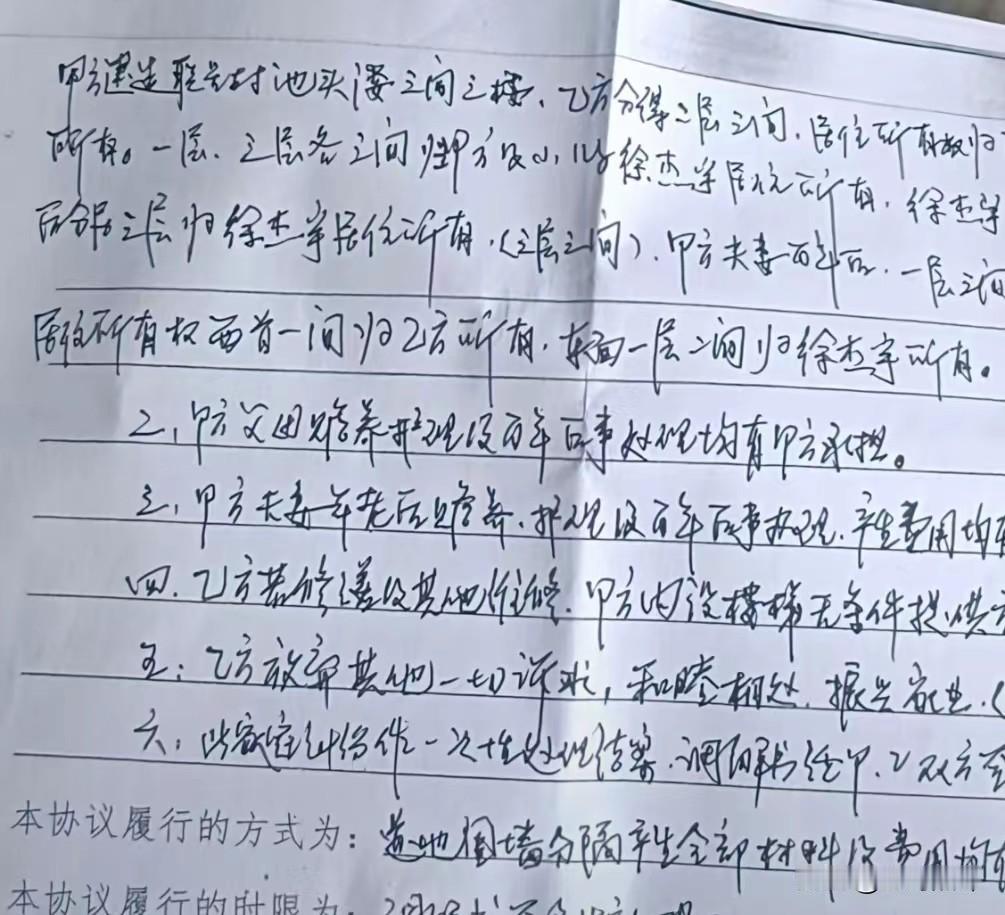 甲方建造联台村池头溇三间三楼、乙方分得二层三间,居住所有权归
所有。一层、三层各三间归甲方及小儿子徐杰宇居住所有,徐杰宇
后分居三层归徐杰宇居住所有,(三层三间)。甲方夫妻百年后,一层三间
居住所有权西首一间归乙方所有,东面一层二间归徐杰宇所有。
二,甲方父母赡养护理及百年后事处理均有甲方承担。
三,甲方夫妻年老后赡养、护理及百年后事办理,产生费用均
四、乙方装修、修缮及其他维修,甲方内设楼梯无条件提供
五:乙方放弃其他一切诉求,和睦相处,振兴家业,(
六:此家庭纠纷作一次性处理结案,调解书经甲、乙双方至
本协议履行的方式为:道地围墙分隔产生全部材料及费用均
本协议履行的时限为: